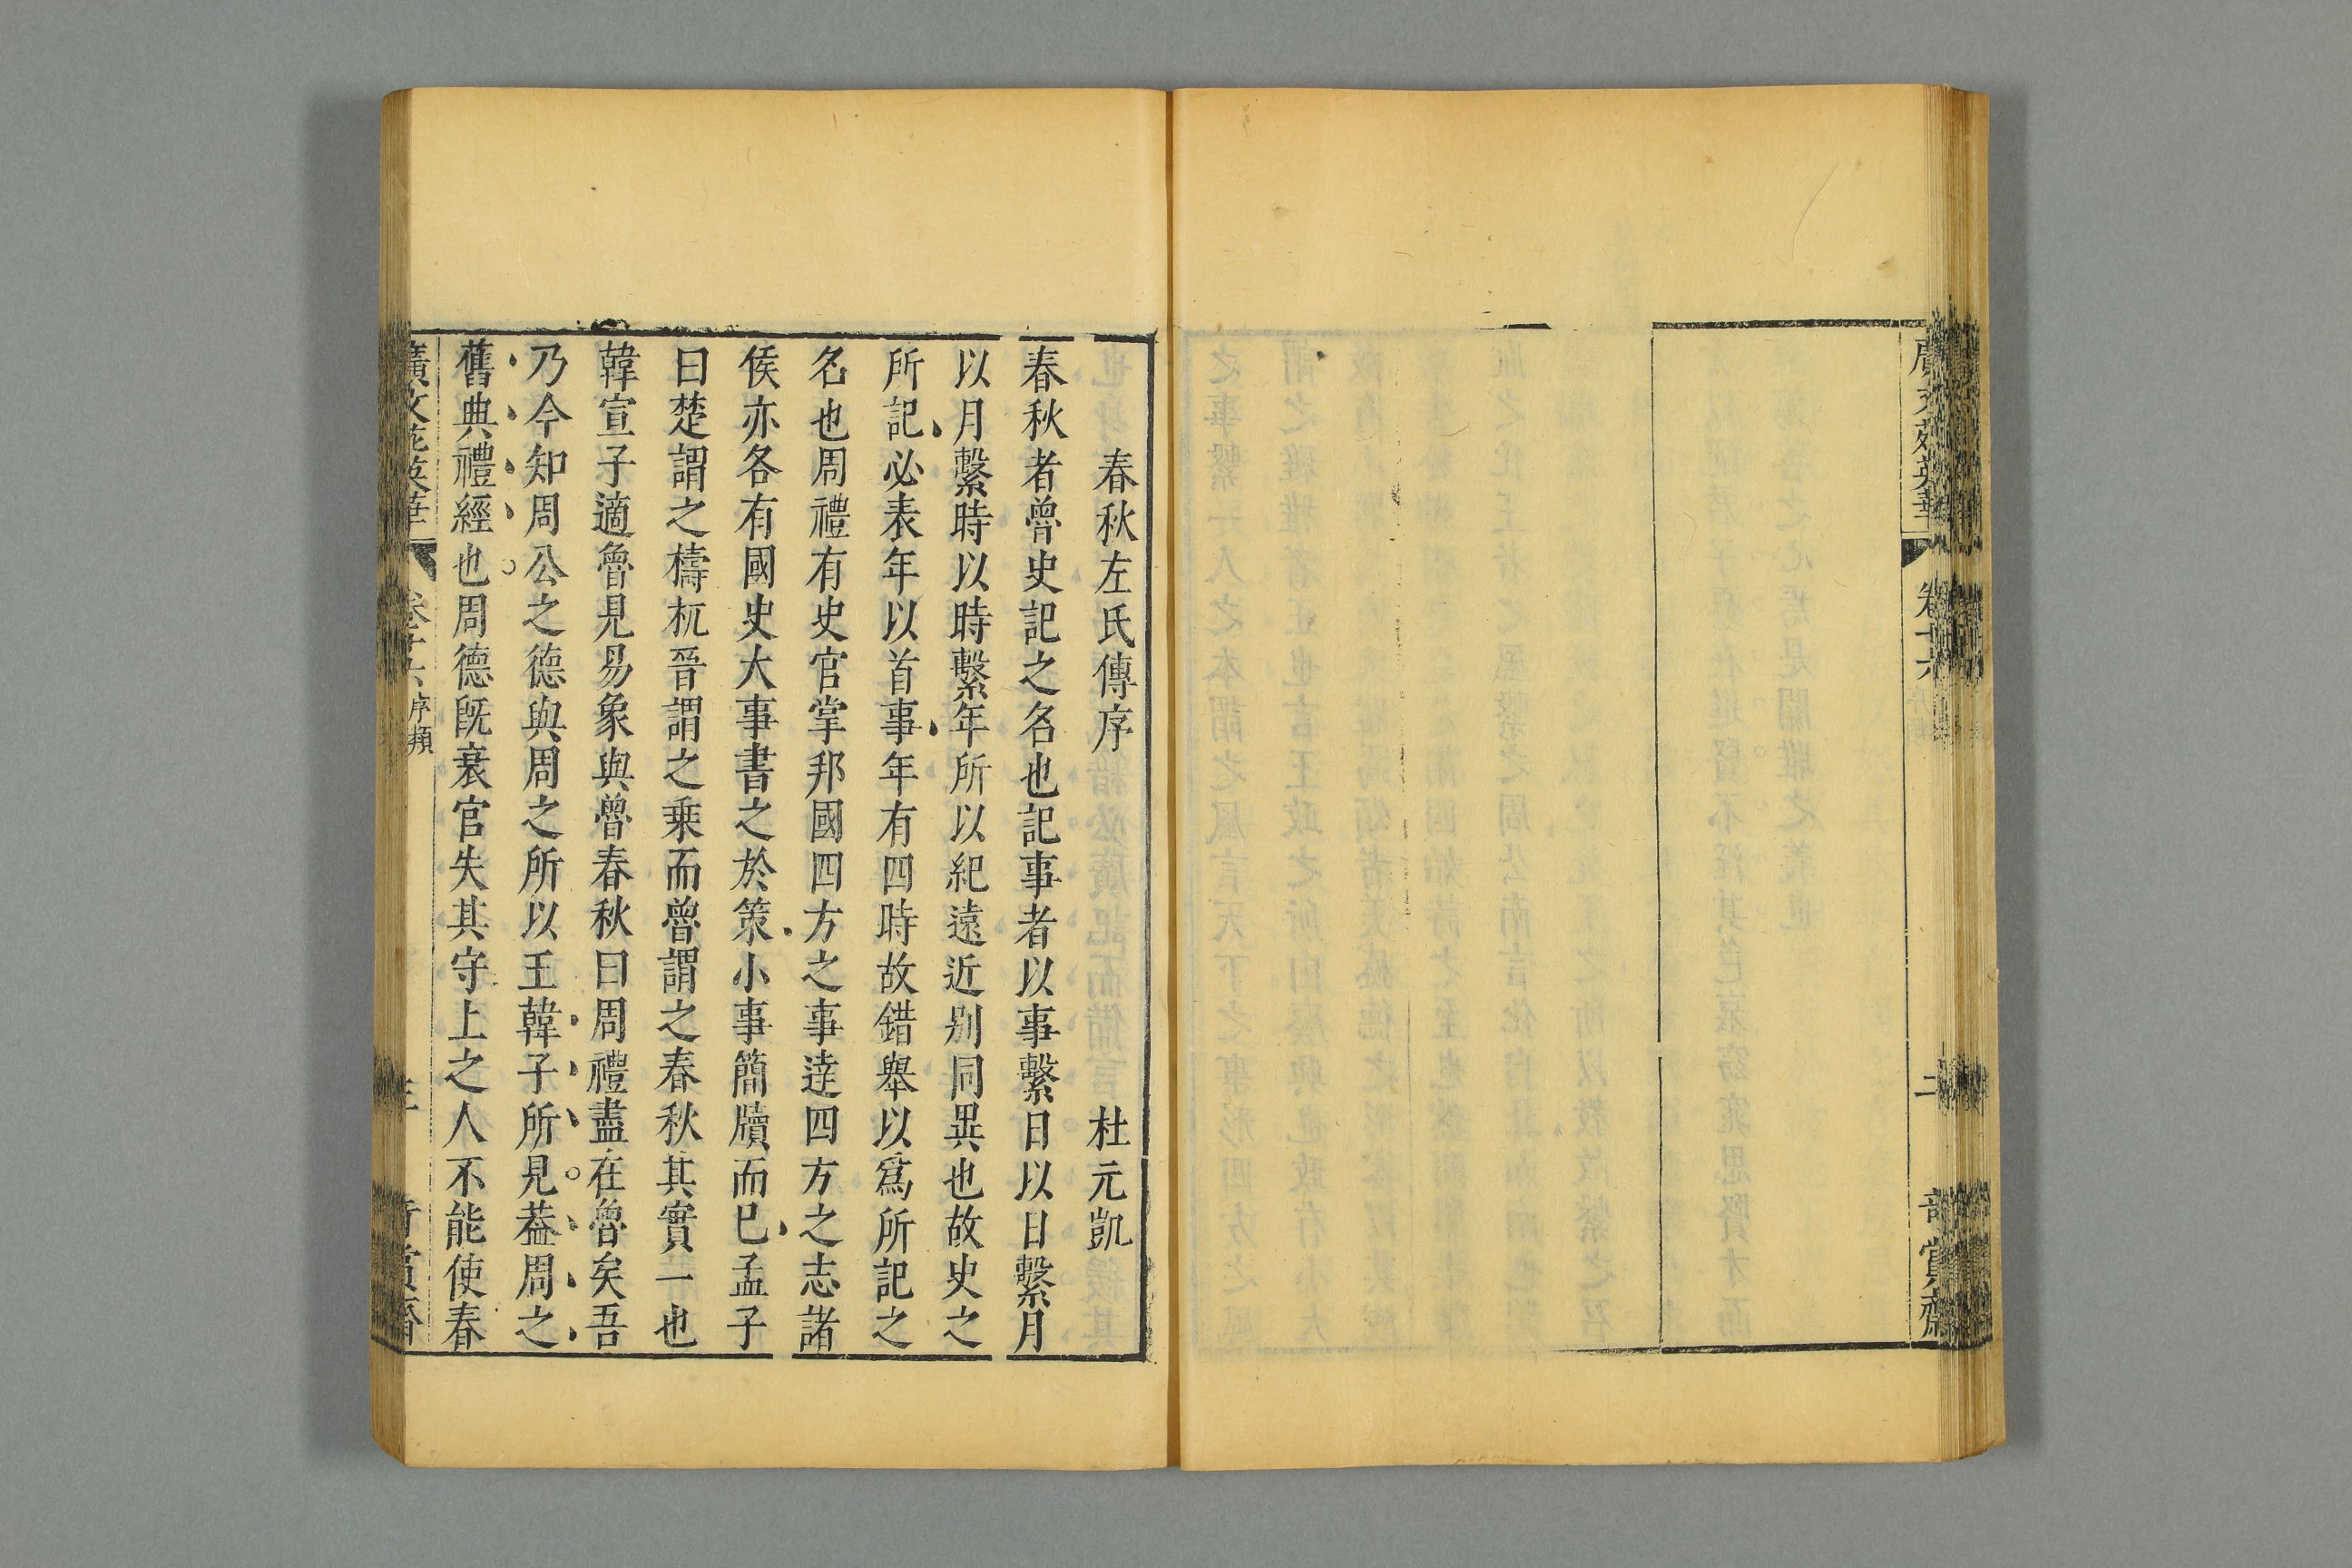 廣文苑英華
卷十六
二
奇賞齋
春秋左氏傳序 杜元凱
春秋者魯史記之名也記事者以事繫日以日繫月
以月繫時以時繫年所以紀遠近別同異也故史之
所記必表年以首事年有四時故錯舉以爲所記之
名也周禮有史官掌邦國四方之事逹四方之志諸
侯亦各有國史大事書之於策小事簡牘而已孟子
曰楚謂之檮杌晉謂之乗而魯謂之春秋其實一也
韓宣子適魯見易象與魯春秋曰周禮盡在魯矣吾
乃今知周公之德與周之所以王韓子所見葢周之
舊典禮經也周德旣衰官失其守上之人不能使春
廣文苑英華
卷十六
序類
三
奇賞齋